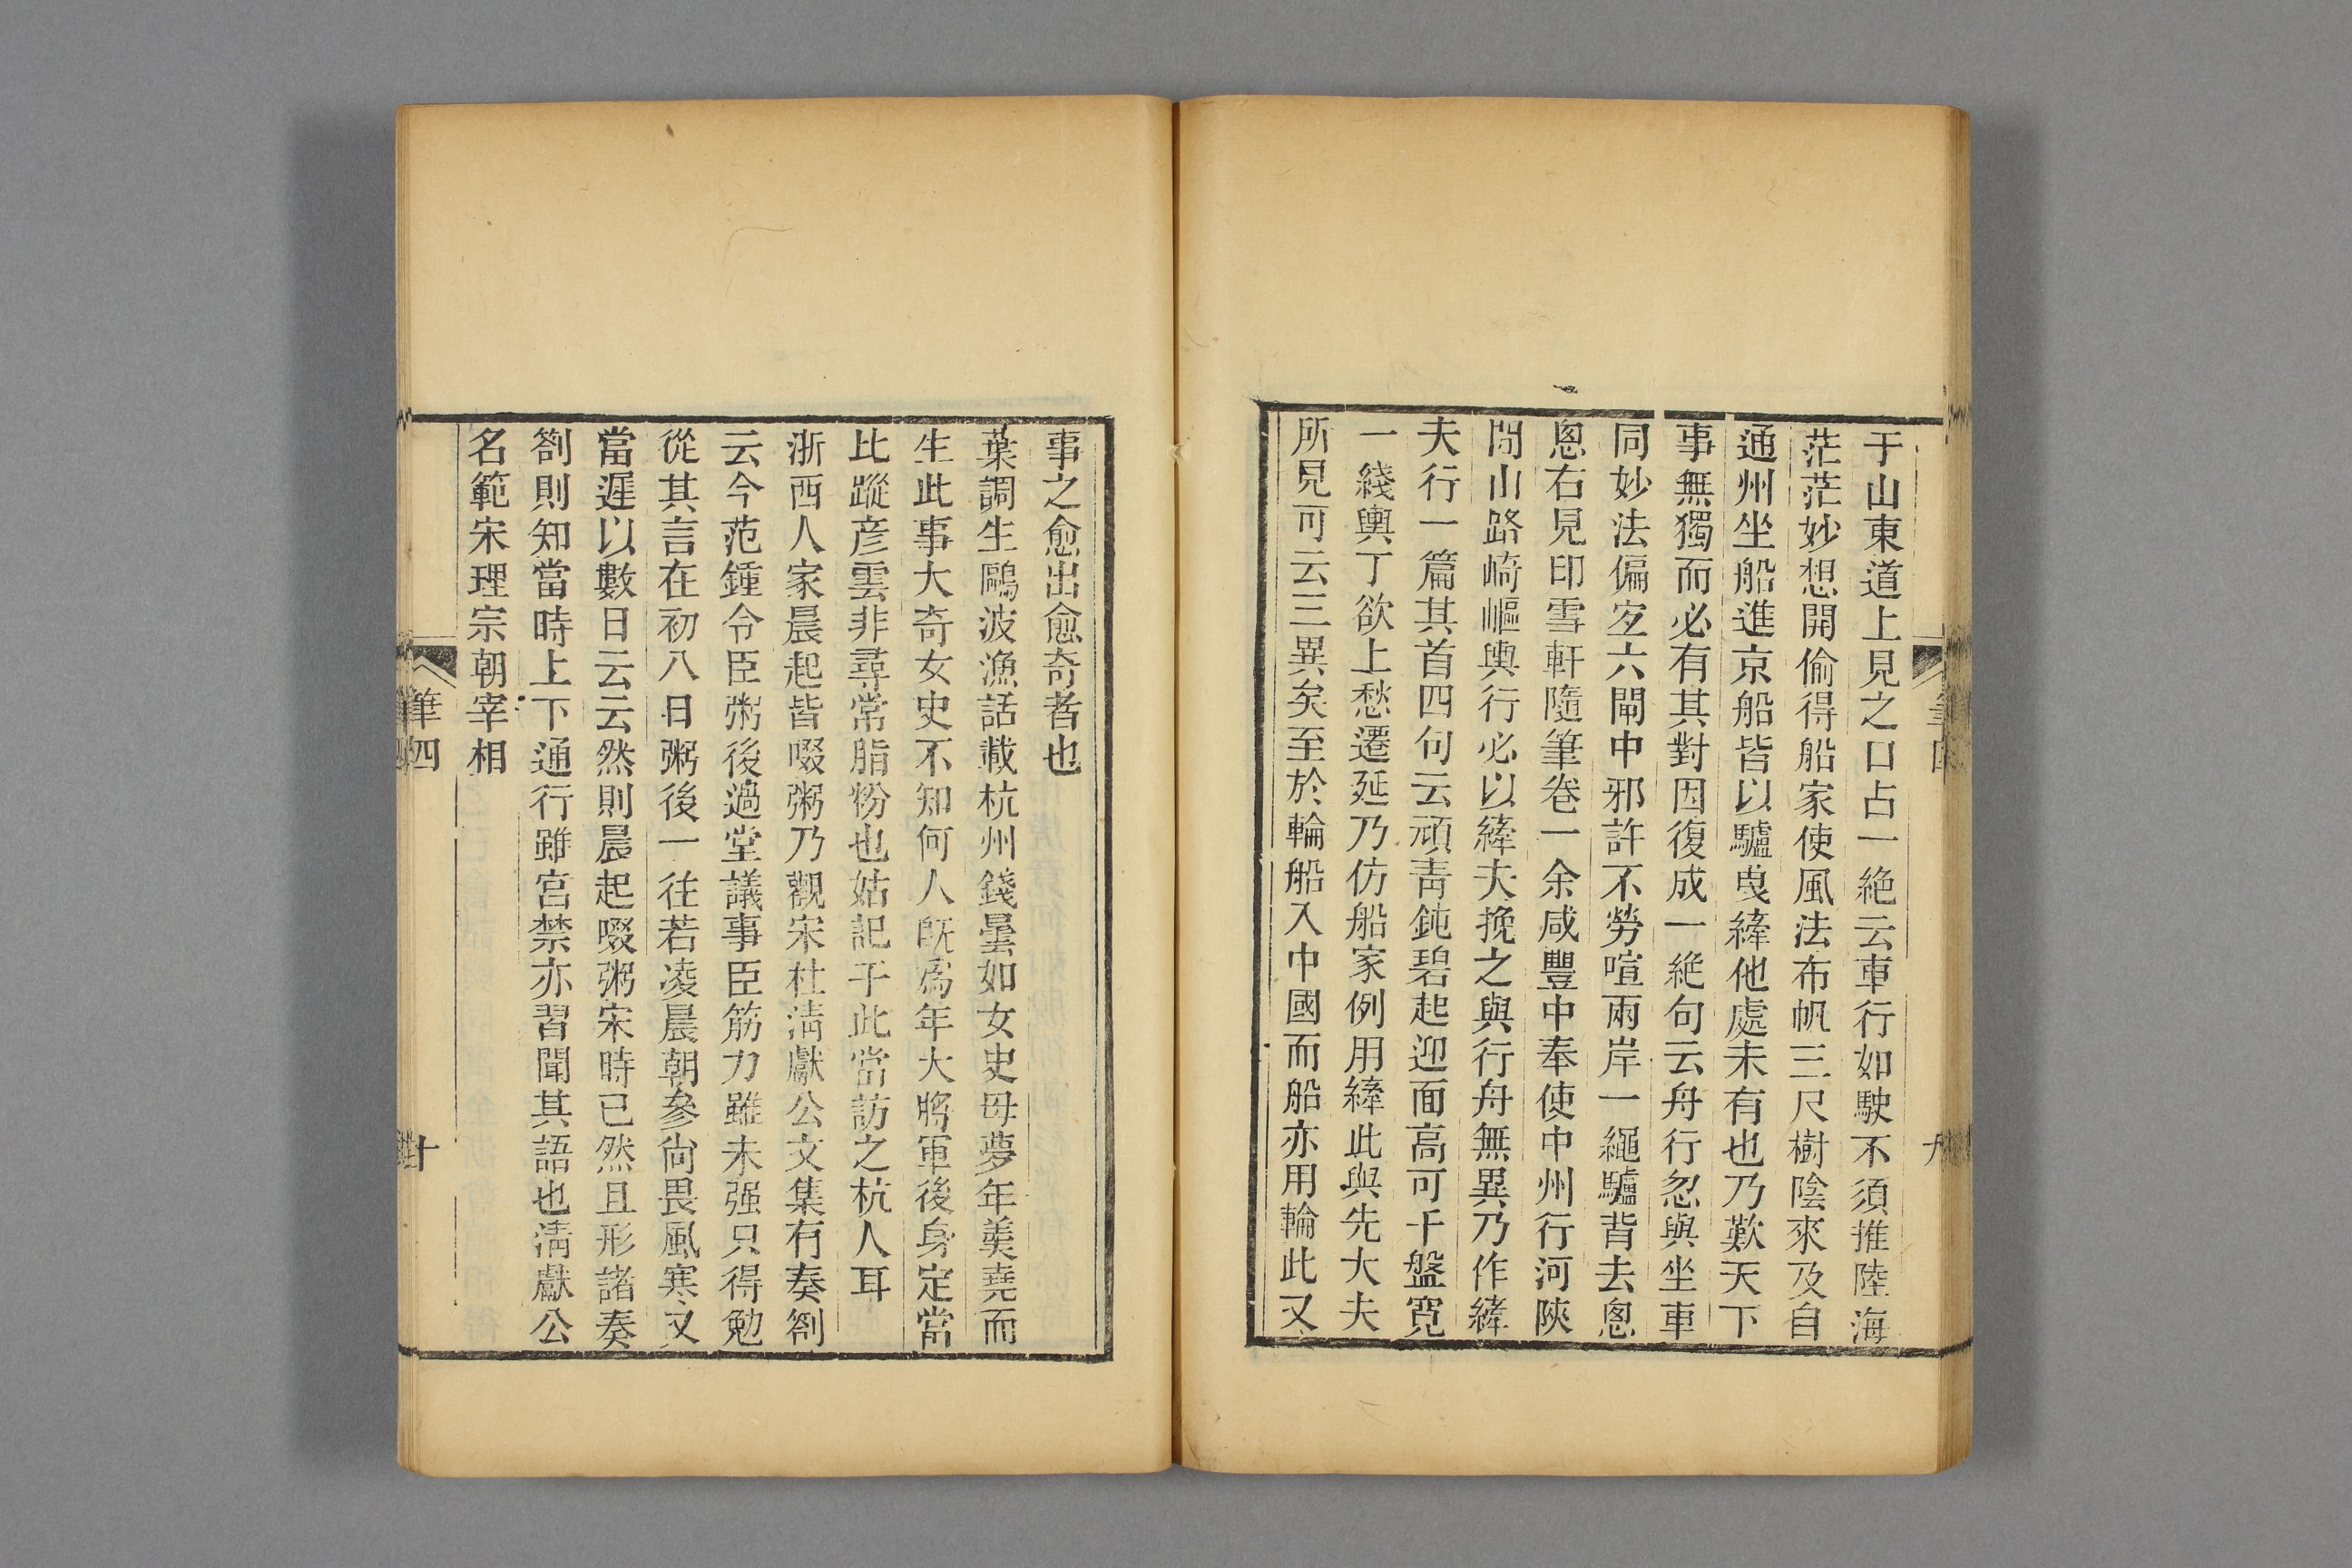 于山東道上見之口占一絶云車行如駛不須推陸海
茫茫妙想開偷得船家使風法布帆三尺樹陰來及自
通州坐船進京船皆以驢曳縴他處未有也乃歎天下
事無獨而必有其對因復成一絶句云舟行忽與坐車
同妙法偏宐六閘中邪許不勞喧兩岸一繩驢背去恖
恖右見印雪軒隨筆卷一余咸豐中奉使中州行河陝
閒山路崎嶇輿行必以縴夫挽之與行舟無異乃作縴
夫行一篇其首四句云頑靑鈍碧起迎面高可千盤寛
一綫輿丁欲上愁遷延乃仿船家例用縴此與先大夫
所見可云三異矣至於輪船入中國而船亦用輪此又
事之愈出愈奇者也
葉調生鷗波漁話載杭州錢曇如女史母夢年羹堯而
生此事大奇女史不知何人旣爲年大將軍後身定當
比蹤彦雲非尋常脂粉也姑記于此當訪之杭人耳
浙西人家晨起皆啜粥乃觀宋杜淸獻公文集有奏劄
云今范鍾令臣粥後過堂議事臣筋力雖未强只得勉
從其言在初八日粥後一往若凌晨朝參尙畏風寒又
當遲以數日云云然則晨起啜粥宋時已然且形諸奏
劄則知當時上下通行雖宫禁亦習聞其語也淸獻公
名範宋理宗朝宰相
筆四
十